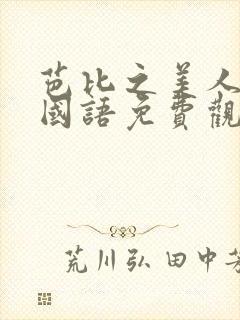 芭比之美人
國語免費觀
荒川弘 田中芳